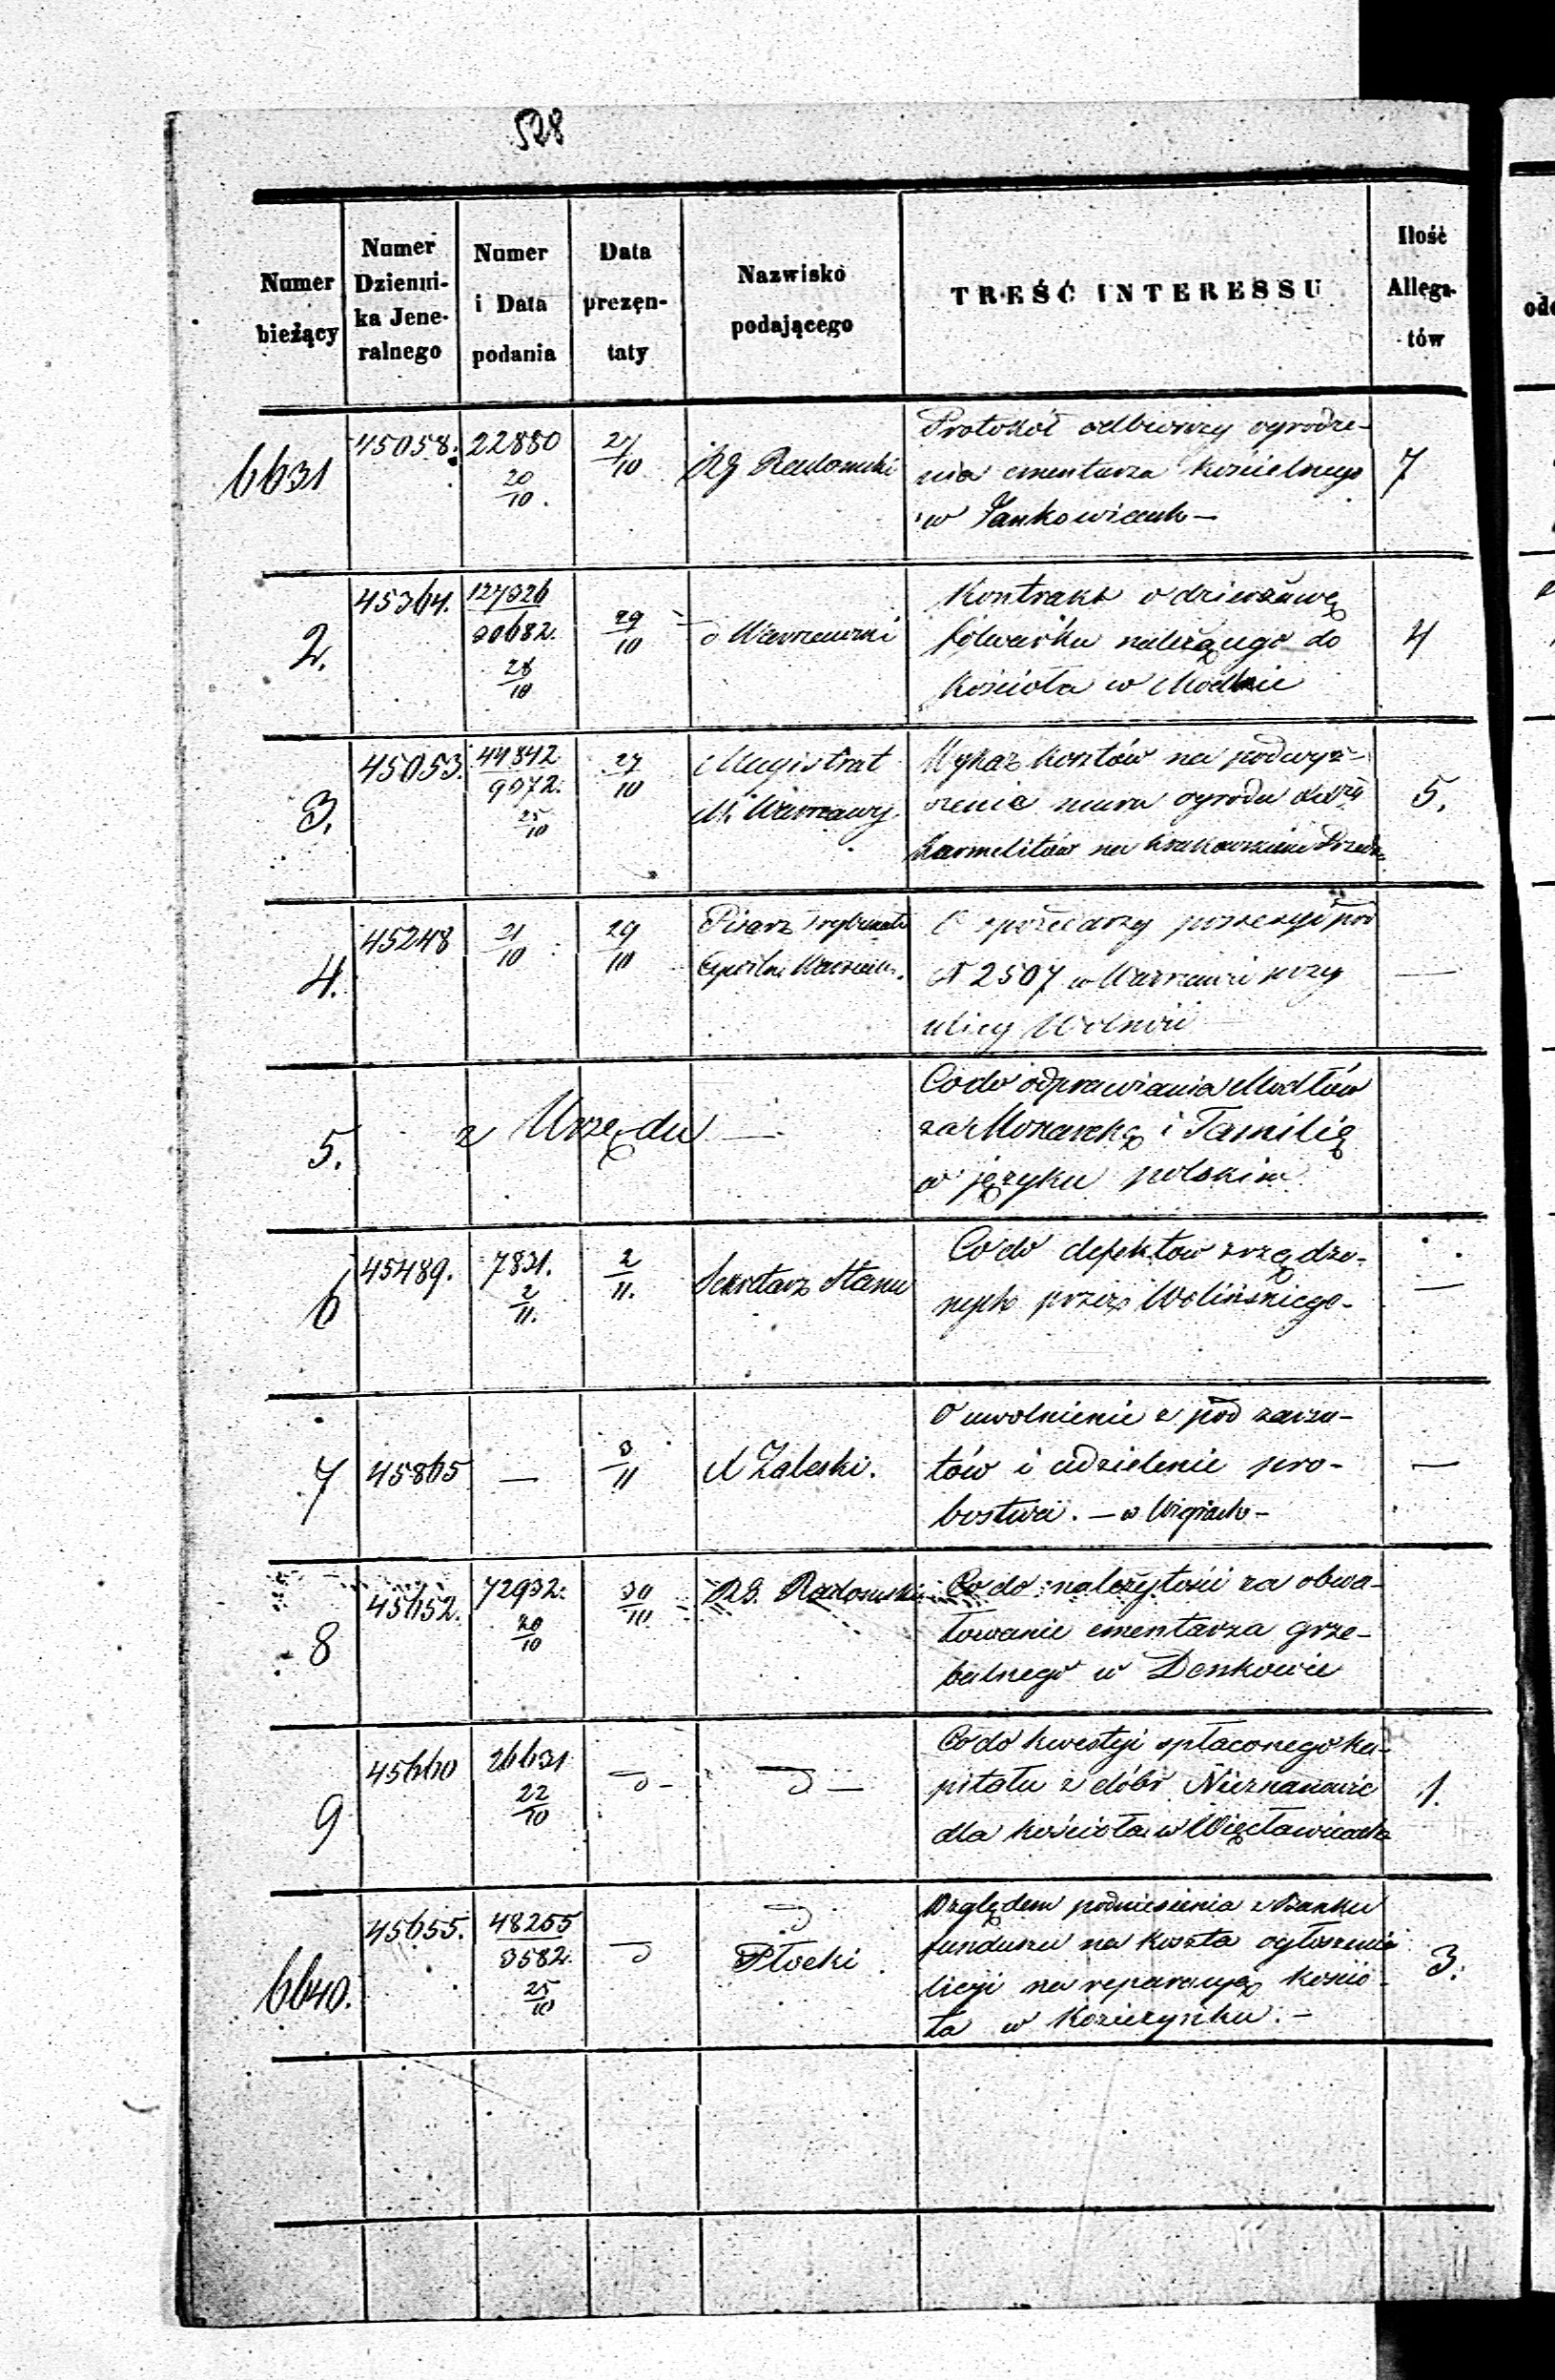 528
Numer bieżący
Numer Dzienni-ka Jene-ralnego
Numer i Data podania
Data prezen-taty
Nazwisko podającego
TREŚĆ INTERESSU
Ilość Allega-tów
6631 45058. 22880 20/10. 27/10 RG Radomski 7
Protokół odbiorczy ogrodze-
nia cmentarza kościelnego
w Jankowicach —
2. 45364. 28/10 29/10 Warszawski 4
Kontrakt o dzierżawę
folwarku należącego do
Kościoła w
3. 45053. 44842 9972. 25/10 27/10 Magistrat 5.
M. Warszawy
Wykaz kosztów na podwyż-
szenie muru ogrodu
Karmelitów na Krakowskim Przedm
4. 45248 21/10 29/10 Pisarz Trybunału —
Cywilne Warszaw.
O sprzedaży possesyi pod
N 2507 w Warszawie przy
ulicy Wolność
5. z Urzędu —
Co do odprawiania Modłów
za Monarchę i Familię
w języku polskim
6 45489. 7831. 2/11. 2/11. Sekretarz Stanu —
Co do defektów zrządzo-
nych przez Wolińskiego —
7 45865 — 3/11 Zaleski. —
O uwolnienie z pod zarzu-
tów i udzielenie pro-
bostwa. — w
8 45652. 72932. 20/10 30/10 RG. Radomski
Co do należytości za obwa-
łowanie cmentarza grze-
balnego w Denkowie
9 45660 26631 22/10 1.
Co do kwestyi spłaconego ka-
pitału z dóbr Nieznanowic
dla kościoła w Więcławicach
6640. 45655. 48255 3582. 25/10 Płocki 3.
Względem podniesienia z Banku
funduszu na koszta ogłoszenia
licyi na reparacyę kościo-
ła w Koziczynku. —